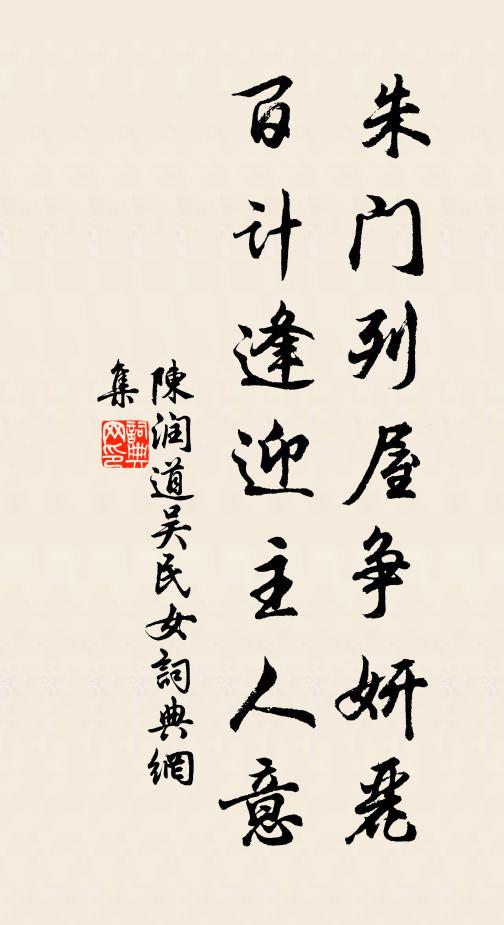 朱门列屋争妍麗
百计逢迎主人意
陳润道吴民女詞典網
集
詞典
网印